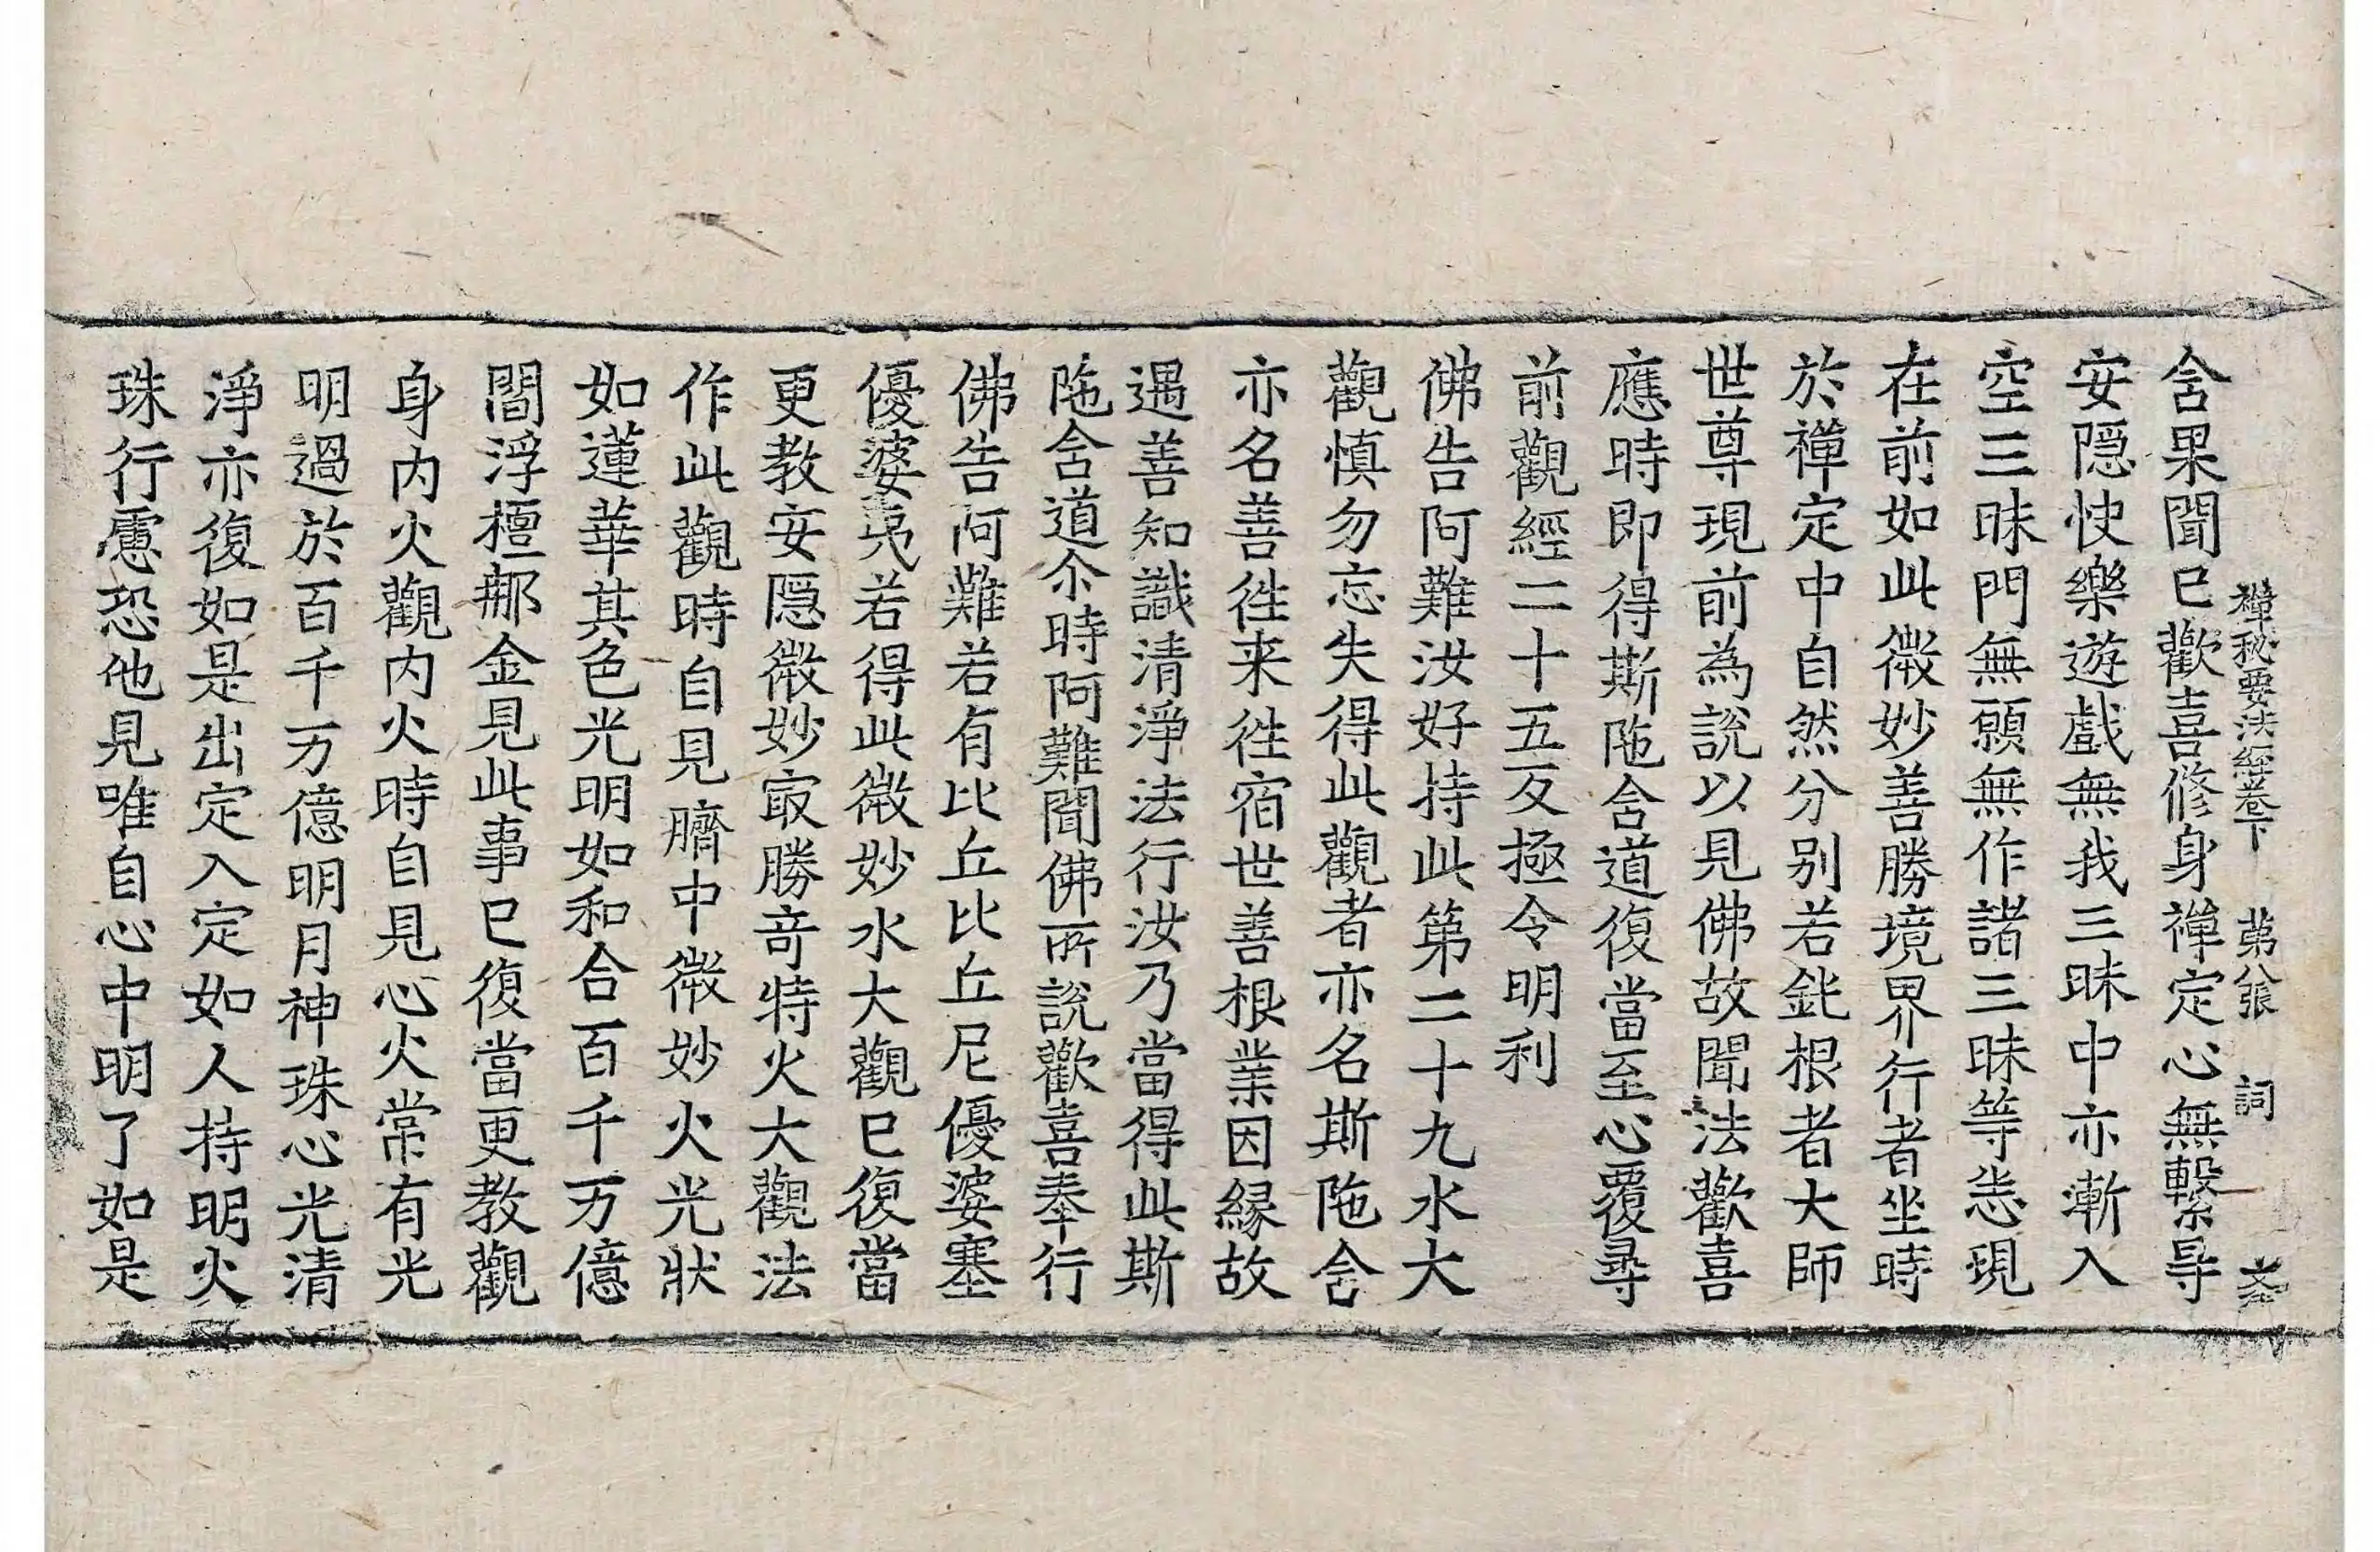 禪秘要法經卷下 第八張 詞
含果聞已歡喜修身禪定心無繫㝵
安隠快樂遊戲無我三昧中亦漸入
空三昧門無願無作諸三昧等悉現
在前如此微妙善勝境界行者坐時
於禪定中自然分别若鈍根者大師
世尊現前為說以見佛故聞法歡喜
應時即得斯陁含道復當至心覆尋
前觀經二十五反極令明利
佛告阿難汝好持此第二十九水大
觀慎勿忘失得此觀者亦名斯陁含
亦名善徃来徃宿世善根業因縁故
遇善知識清淨法行汝乃當得此斯
陁含道尒時阿難聞佛所說歡喜奉行
佛告阿難若有比丘比丘尼優婆塞
優婆夷若得此微妙水大觀已復當
更教安隠微妙㝡勝竒特火大觀法
作此觀時自見臍中微妙火光狀
如蓮華其色光明如和合百千万億
閻浮檀那金見此事已復當更教觀
身内火觀内火時自見心火常有光
明過於百千万億明月神珠心光清
淨亦復如是出定入定如人持明火
珠行慮恐他見唯自心中明了如是